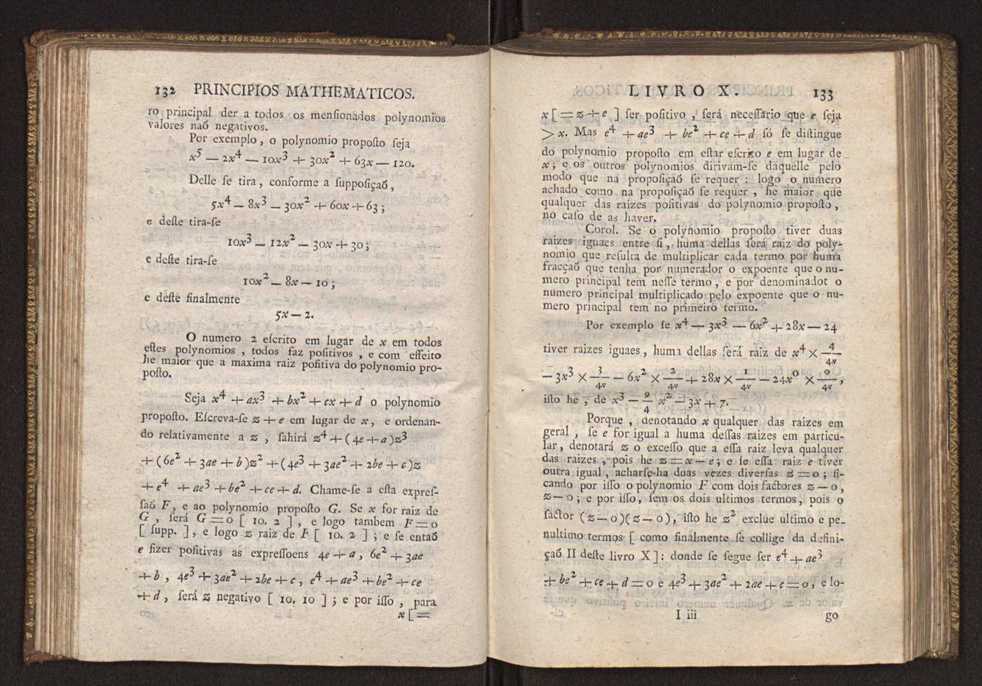 132 PRINCIPIOS MATHEMATICOS.
ro principal der a todos os mensionados polynomios
valores naõ negativos.
Por exemplo, o polynomio proposto seja
x⁵ — 2x⁴ — 10x³ + 30x² + 63x — 120.
Delle se tira, conforme a supposiçaõ,
5x⁴ — 8x³ — 30x² + 60x + 63;
e deste tira-se
10x³ — 12x² — 30x + 30;
e deste tira-se
10x² — 8x — 10;
e deste finalmente
5x — 2.
O numero 2 escrito em lugar de x em todos
estes polynomios, todos faz positivos, e com effeito
he maior que a maxima raiz positiva do polynomio pro-
posto.
Seja x⁴ + ax³ + bx² + cx + d o polynomio
proposto. Escreva-se z + e em lugar de x, e ordenan-
do relativamente a z, sahirá z⁴ + (4e + a)z³
+ (6e² + 3ae + b)z² + (4e³ + 3ae² + 2be + c)z
+ e⁴ + ae³ + be² + ce + d. Chame-se a esta expres-
saõ F, e ao polynomio proposto G. Se x for raiz de
G, será G = 0 [10. 2], e logo tambem F = 0
[supp.], e logo z raiz de F [10. 2]; e se entaõ
e fizer positivas as expressoens 4e + a, 6e² + 3ae
+ b, 4e³ + 3ae² + 2be + c, e⁴ + ae³ + be² + ce
+ d, será z negativo [10. 10]; e por isso, para
x [ =
LIVRO X. 133
x [ = z + e ] ser positivo, será necessario que e seja
> x. Mas e⁴ + ae³ + be² + ce + d só se distingue
do polynomio proposto em estar escrito e em lugar de
x; e os outros polynomios dirivam-se daquelle pelo
modo que na proposiçaõ se requer: logo o numero
achado como na proposiçaõ se requer, he maior que
qualquer das raizes positivas do polynomio proposto,
no caso de as haver.
Corol. Se o polynomio proposto tiver duas
raizes iguaes entre si, huma dellas será raiz do poly-
nomio que resulta de multiplicar cada termo por huma
fracçaõ que tenha por numerador o expoente que o nu-
mero principal tem nesse termo, e por denominador o
numero principal multiplicado pelo expoente que o nu-
mero principal tem no primeiro termo.
Por exemplo se x⁴ — 3x³ — 6x² + 28x — 24
tiver raizes iguaes, huma dellas será raiz de x⁴ × 4/4x
— 3x³ × 3/4x — 6x² × 2/4x + 28x × 1/4x — 24x⁰ × 0/4x,
isto he, de x³ — 9/4 x² — 3x + 7.
Porque, denotando x qualquer das raizes em
geral, se e for igual a huma dessas raizes em particu-
lar, denotará z o excesso que a essa raiz leva qualquer
das raizes, pois he z = x — e; e se essa raiz e tiver
outra igual, acharse-ha doas vezes diversas z = 0; fi-
cando por isso o polynomio F com dois factores z — 0,
z — 0; e por isso, sem os dois ultimos termos, pois o
factor (z — 0)(z — 0), isto he z² exclue ultimo e pe-
nultimo termos [como finalmente se collige da defini-
çaõ II deste livro X]: donde se segue ser e⁴ + ae³
+ be² + ce + d = 0 e 4e³ + 3ae² + 2ae + c = 0, e lo-
I iii go